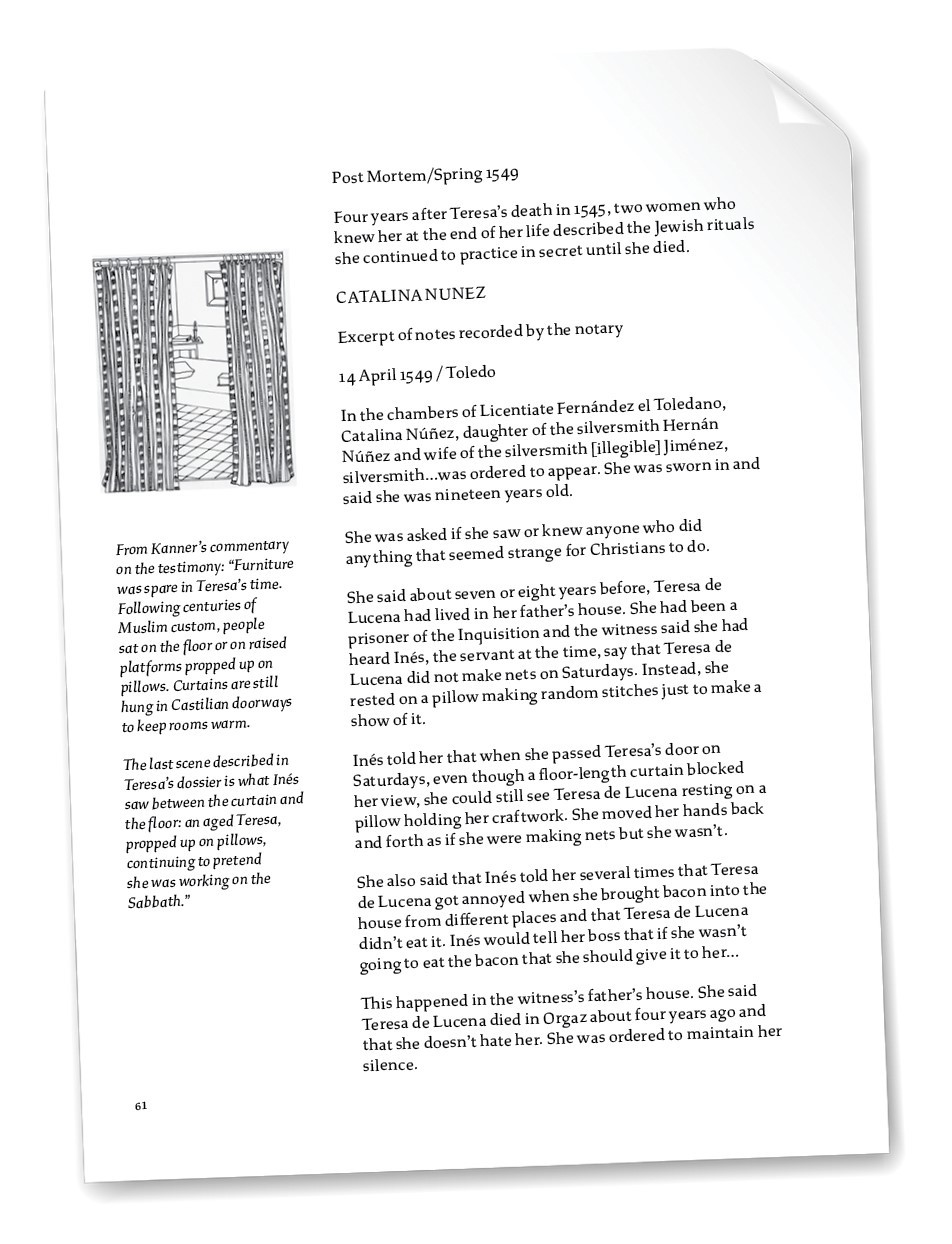 Post Mortem/Spring 1549
Four years after Teresa's death in 1545, two women who
knew her at the end of her life described the Jewish rituals
she continued to practice in secret until she died.
CATALINA NUNEZ
Excerpt of notes recorded by the notary
14 April 1549 / Toledo
In the chambers of Licentiate Fernández el Toledano,
Catalina Núñez, daughter of the silversmith Hernán
Núñez and wife of the silversmith [illegible] Jiménez,
silversmith...was ordered to appear. She was sworn in and
said she was nineteen years old.
She was asked if she saw or knew anyone who did
anything that seemed strange for Christians to do.
She said about seven or eight years before, Teresa de
Lucena had lived in her father's house. She had been a
prisoner of the Inquisition and the witness said she had
heard Inés, the servant at the time, say that Teresa de
Lucena did not make nets on Saturdays. Instead, she
rested on a pillow making random stitches just to make a
show of it.
Inés told her that when she passed Teresa's door on
Saturdays, even though a floor-length curtain blocked
her view, she could still see Teresa de Lucena resting on a
pillow holding her craftwork. She moved her hands back
and forth as if she were making nets but she wasn't.
She also said that Inés told her several times that Teresa
de Lucena got annoyed when she brought bacon into the
house from different places and that Teresa de Lucena
didn't eat it. Inés would tell her boss that if she wasn't
going to eat the bacon that she should give it to her...
This happened in the witness's father's house. She said
Teresa de Lucena died in Orgaz about four years ago and
that she doesn't hate her. She was ordered to maintain her
silence.
From Kanner's commentary
on the testimony: "Furniture
was spare in Teresa's time.
Following centuries of
Muslim custom, people
sat on the floor or on raised
platforms propped up on
pillows. Curtains are still
hung in Castilian doorways
to keep rooms warm.
The last scene described in
Teresa's dossier is what Inés
saw between the curtain and
the floor: an aged Teresa,
propped up on pillows,
continuing to pretend
she was working on the
Sabbath."
61